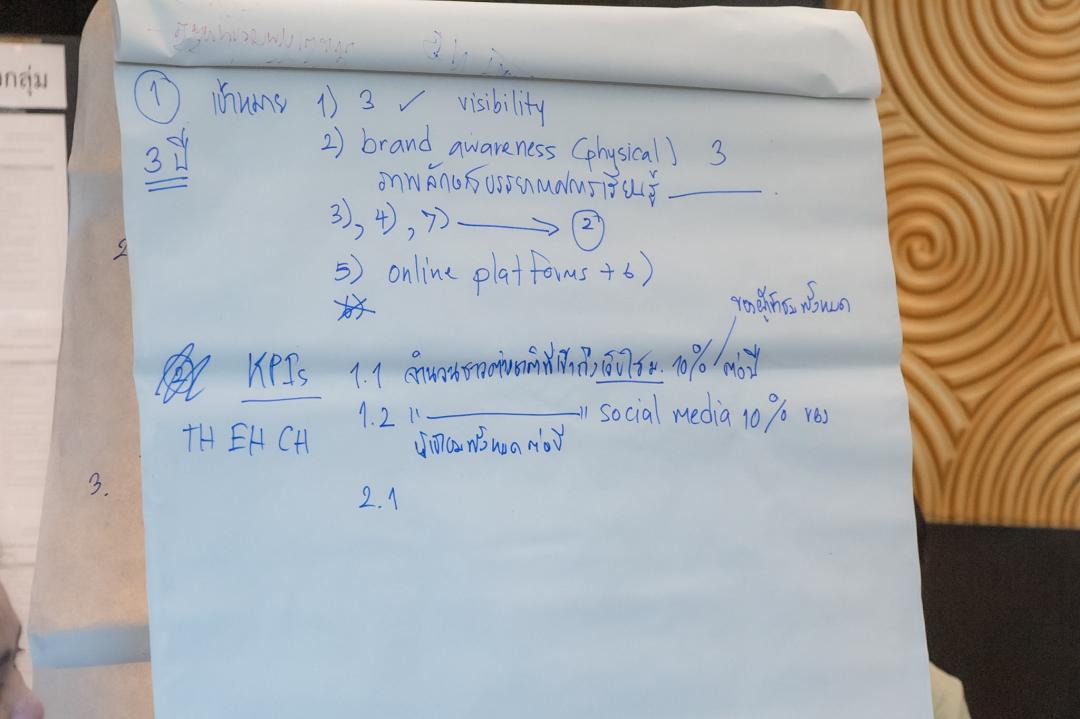 กลุ่ม
① เป้าหมาย 1) 3 ✓ visibility
3 ปี
2) brand awareness (physical) 3
ภาพลักษณ์บรรยากาศการเรียนรู้
3), 4), 7) → ②
5) online platforms + 6)
6)
ของผู้เข้าชมทั้งหมด
② KPIs 1.1 จำนวนชาวต่างชาติที่เข้าถึงเว็บไซต์ ม. 10% ต่อปี
1.2 " ———— " social media 10% ของ
TH EH CH
ผู้เข้าชมทั้งหมด ต่อปี
2.1
2
3.